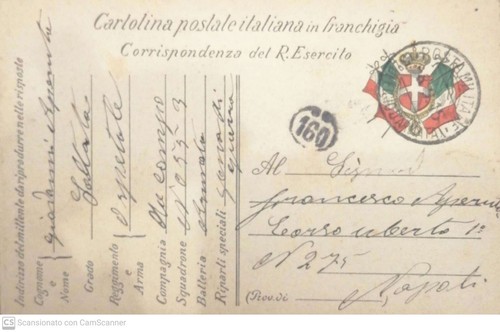 Cartolina postale italiana in franchigia
Corrispondenza del R. Esercito
POSTA MILITARE
160
Indirizzo del mittente da riprodurre nelle risposte
Cognome e Nome Giovanni
Grado Soldato
Reggimento e Arma Ospedale
Compagnia da campo
Squadrone N° 055
Batteria
Riparti speciali
guerra
Al Signor
Francesco
Corso Umberto 1°
N 275
(Prov. di Napoli
CS Scansionato con CamScanner